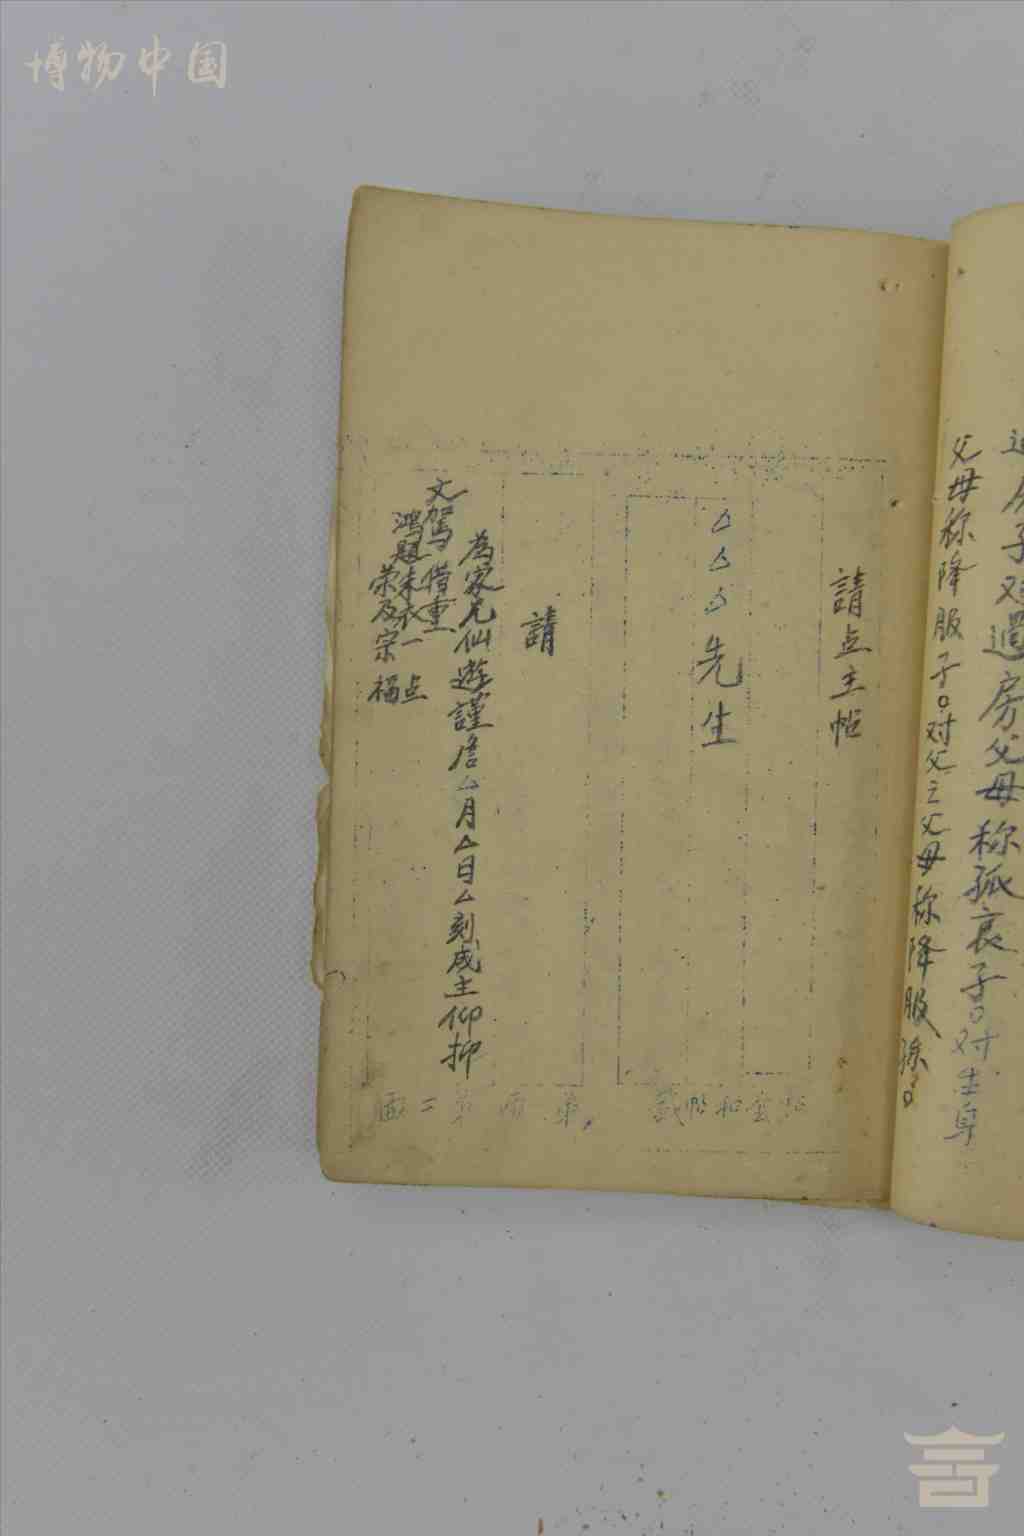 博物中国
父母称孤哀子。对生身
父母称降服子。对父之父母称降服孫。
請点主帖
△△△先生
請
為家兄仙遊謹詹△月△日△刻成主仰抑
文駕借重
鴻題朱衣一点
荣及宗福